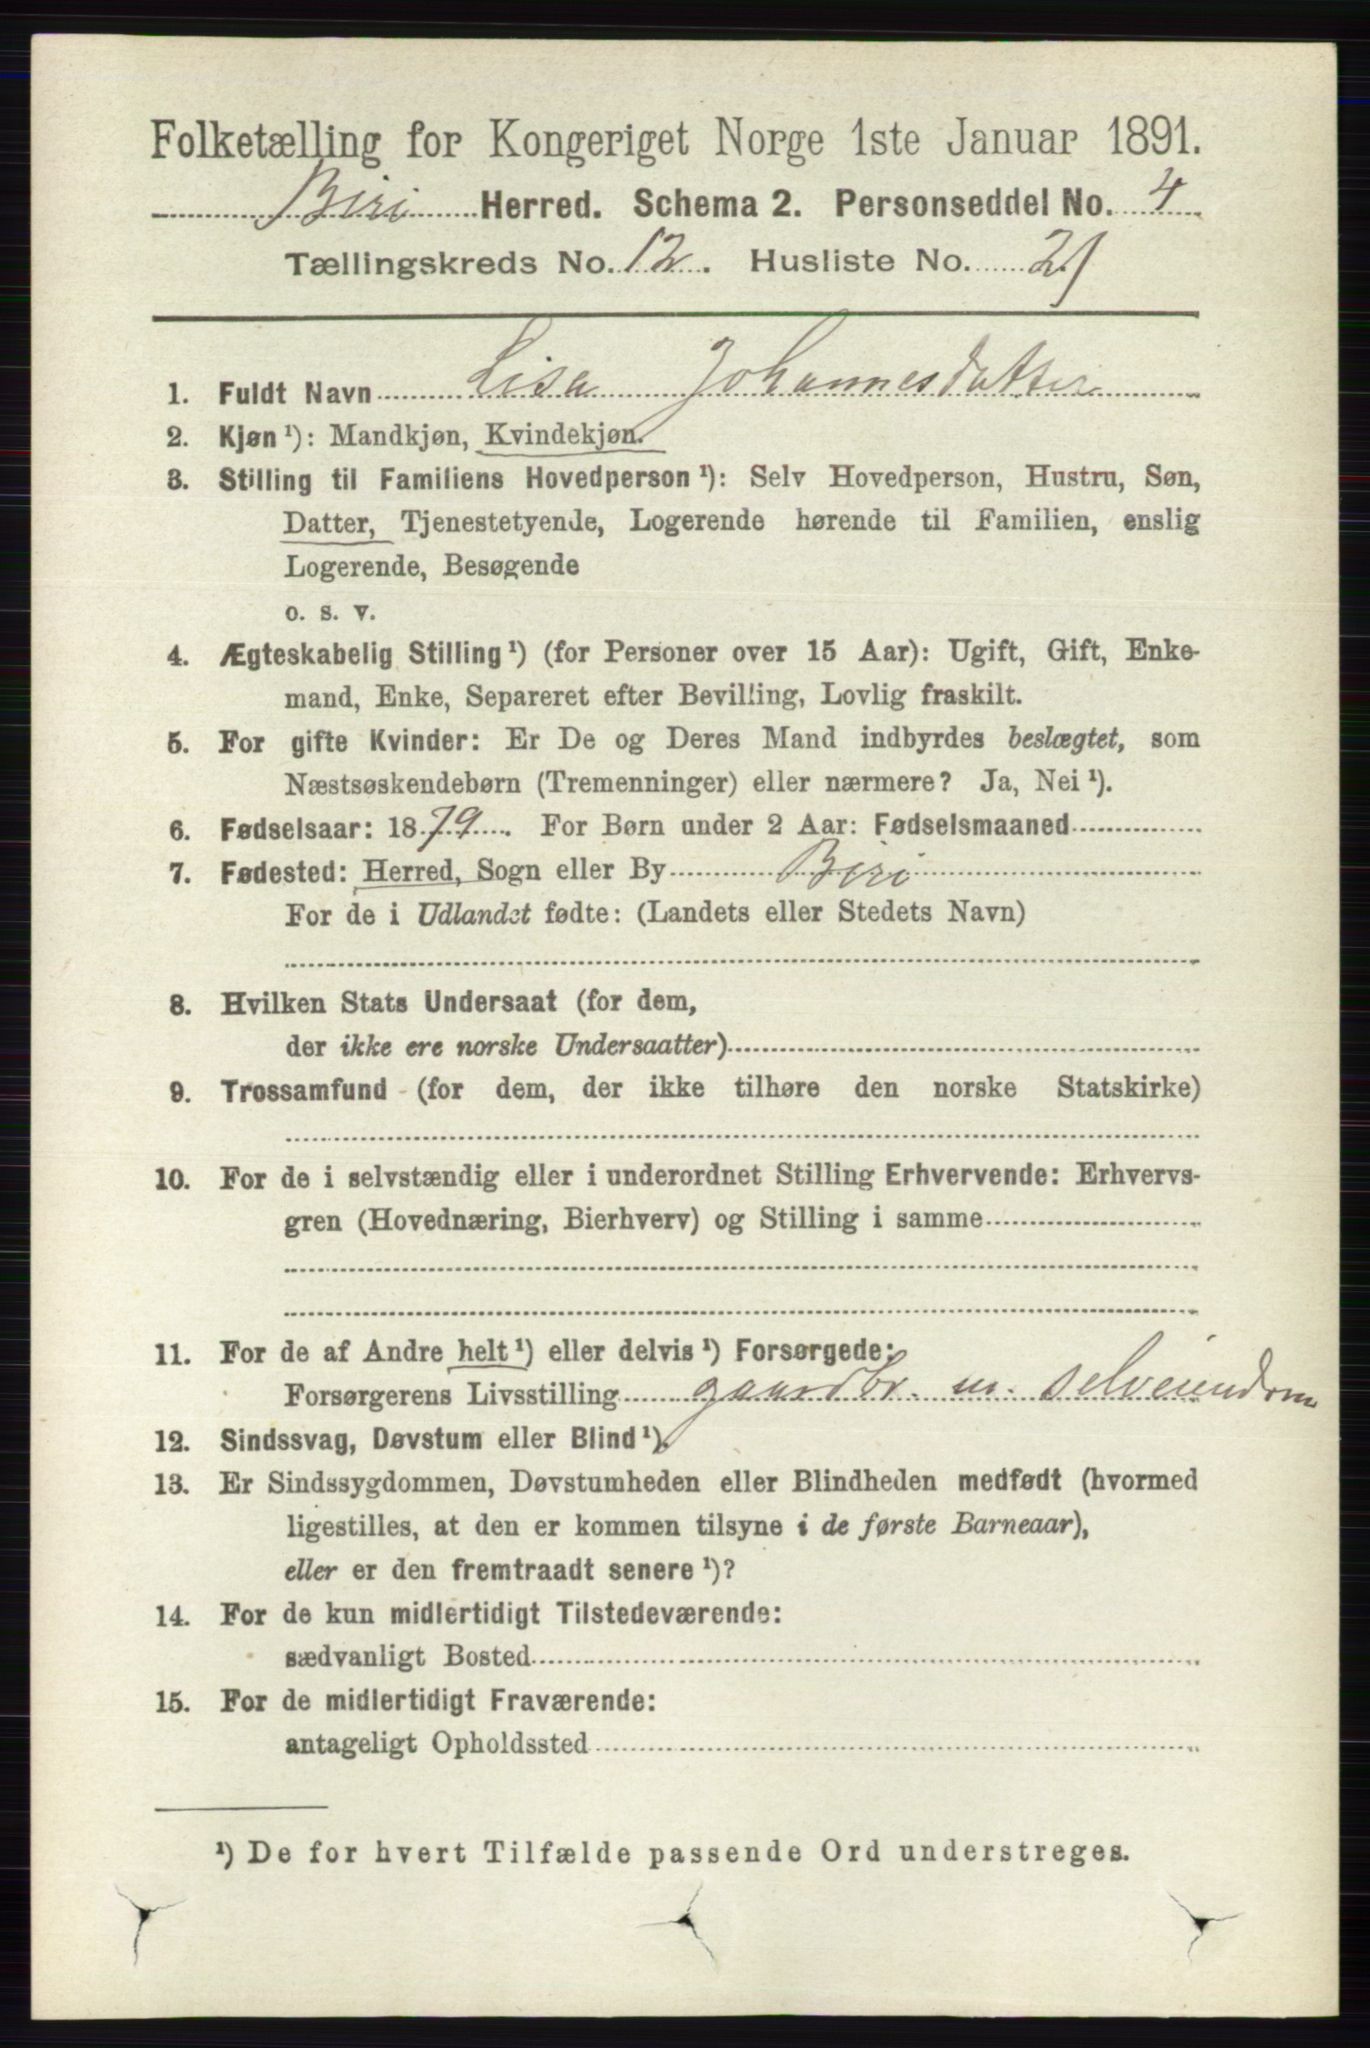 Folketælling for Kongeriget Norge 1ste Januar 1891.
Biri Herred. Schema 2. Personseddel No. 4
Tællingskreds No. 12. Husliste No. 21
1. Fuldt Navn Lisa Johannesdatter
2. Kjøn ¹): Mandkjøn, Kvindekjøn.
3. Stilling til Familiens Hovedperson ¹): Selv Hovedperson, Hustru, Søn,
Datter, Tjenestetyende, Logerende hørende til Familien, enslig
Logerende, Besøgende
o. s. v.
4. Ægteskabelig Stilling ¹) (for Personer over 15 Aar): Ugift, Gift, Enke-
mand, Enke, Separeret efter Bevilling, Lovlig fraskilt.
5. For gifte Kvinder: Er De og Deres Mand indbyrdes beslægtet, som
Næstsøskendebørn (Tremenninger) eller nærmere? Ja, Nei ¹).
6. Fødselsaar: 1879. For Børn under 2 Aar: Fødselsmaaned
7. Fødested: Herred, Sogn eller By Biri
For de i Udlandet fødte: (Landets eller Stedets Navn)
8. Hvilken Stats Undersaat (for dem,
der ikke ere norske Undersaatter)
9. Trossamfund (for dem, der ikke tilhøre den norske Statskirke)
10. For de i selvstændig eller i underordnet Stilling Erhvervende: Erhvervs-
gren (Hovednæring, Bierhverv) og Stilling i samme
11. For de af Andre helt ¹) eller delvis ¹) Forsørgede:
Forsørgerens Livsstilling gaardbr. m. selveiendom
12. Sindssvag, Døvstum eller Blind ¹).
13. Er Sindssygdommen, Døvstumheden eller Blindheden medfødt (hvormed
ligestilles, at den er kommen tilsyne i de første Barneaar),
eller er den fremtraadt senere ¹)?
14. For de kun midlertidigt Tilstedeværende:
sædvanligt Bosted
15. For de midlertidigt Fraværende:
antageligt Opholdssted
¹) De for hvert Tilfælde passende Ord understreges.